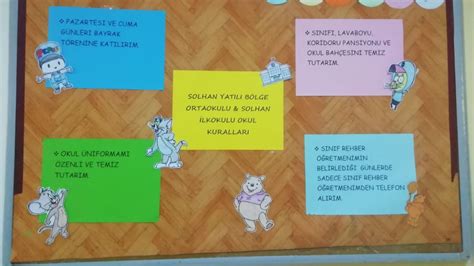 ❖ PAZARTESİ VE CUMA
GÜNLERİ BAYRAK
TÖRENİNE KATILIRIM.
❖ SINIFI, LAVABOYU,
KORİDORU PANSİYONU VE
OKUL BAHÇESİNİ TEMİZ
TUTARIM.
SOLHAN YATILI BÖLGE
ORTAOKULU & SOLHAN
İLKOKULU OKUL
KURALLARI
❖ OKUL ÜNİFORMAMI
ÖZENLİ VE TEMİZ
TUTARIM
❖ SINIF REHBER
ÖĞRETMENİMİN
BELİRLEDİĞİ GÜNLERDE
SADECE SINIF REHBER
ÖĞRETMENİMDEN TELEFON
ALIRIM.